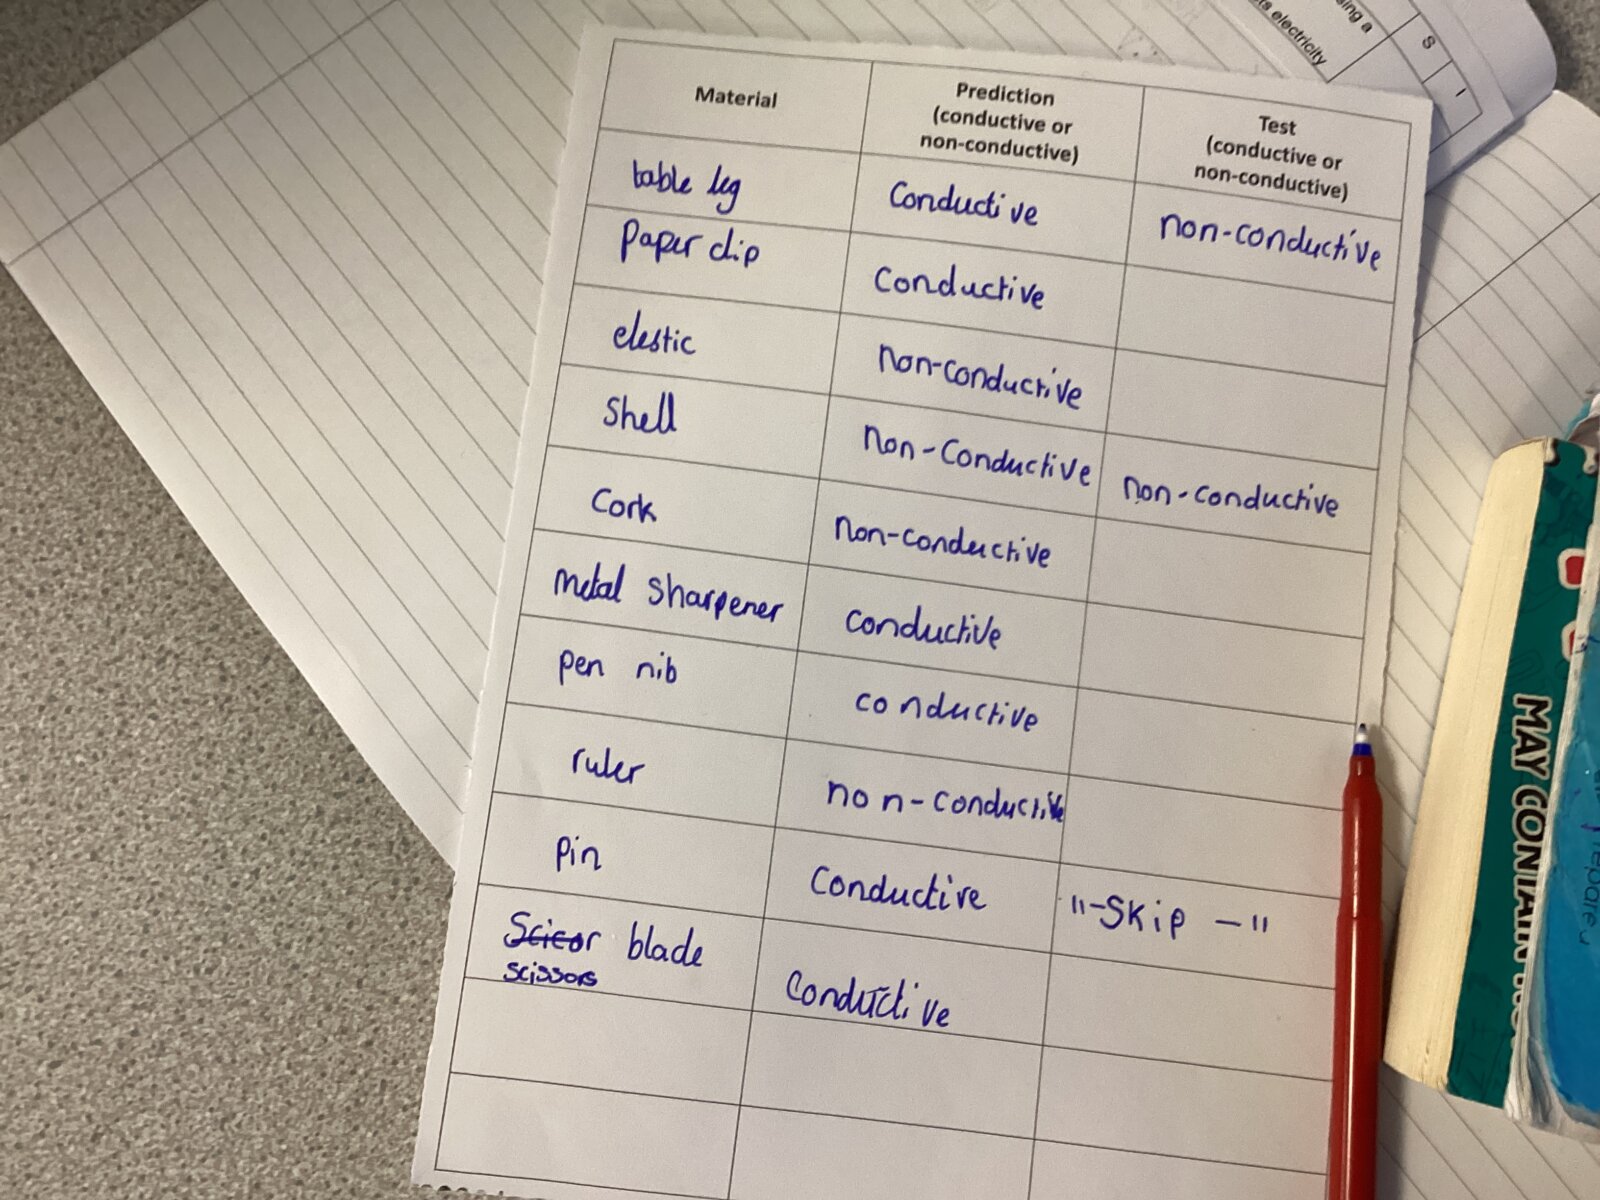 sing a
ts electricity
S
I
Material
Prediction
(conductive or
non-conductive)
Test
(conductive or
non-conductive)
table leg
Conductive
non-conductive
Paper clip
Conductive
elestic
non-conductive
Shell
non-Conductive
non-conductive
Cork
non-conductive
metal sharpener
conductive
pen nib
conductive
ruler
non-conductive
pin
Conductive
"-Skip -"
Scicor blade
scissors
Conductive
MAY CONTAIN